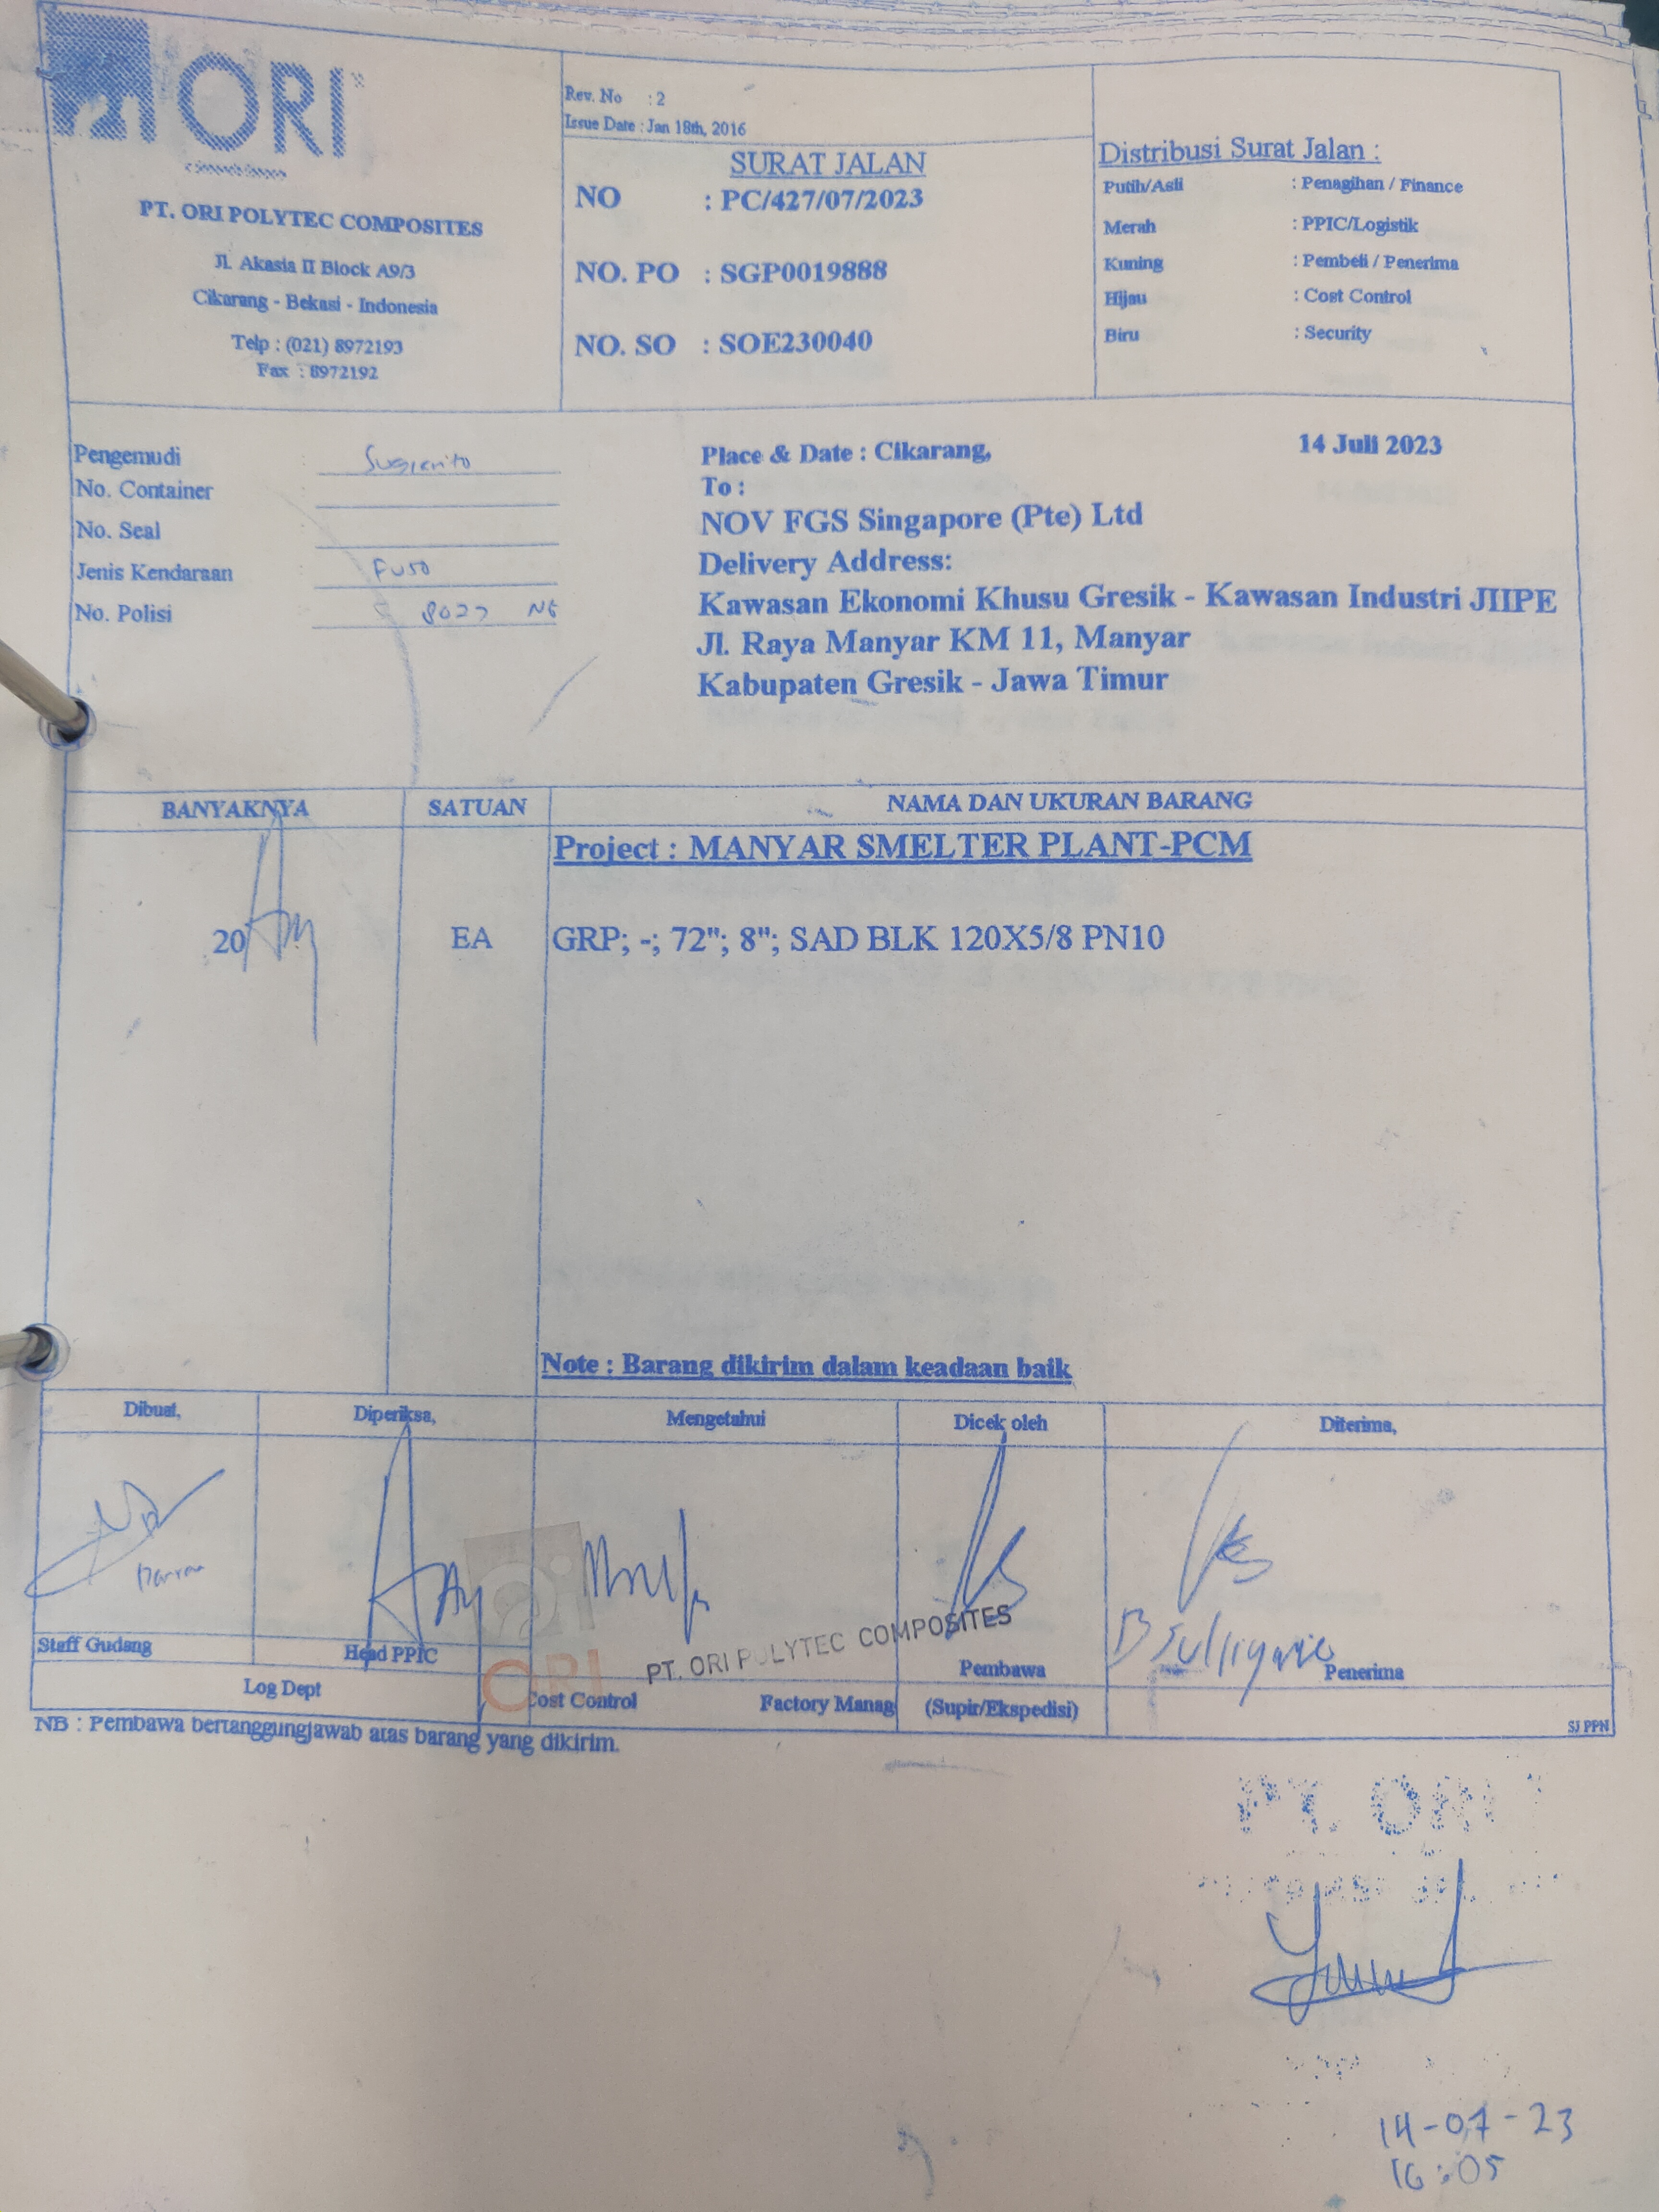 ORI
PT. ORI POLYTEC COMPOSITES
Jl. Akasia II Block A9/3
Cikarang - Bekasi - Indonesia
Telp : (021) 8972193
Fax : 8972192
Rev. No : 2
Issue Date : Jan 18th, 2016
SURAT JALAN
NO : PC/427/07/2023
NO. PO : SGP0019888
NO. SO : SOE230040
Distribusi Surat Jalan :
Putih/Asli : Penagihan / Finance
Merah : PPIC/Logistik
Kuning : Pembeli / Penerima
Hijau : Cost Control
Biru : Security
Pengemudi
No. Container
No. Seal
Jenis Kendaraan Fuso
No. Polisi
Place & Date : Cikarang, 14 Juli 2023
To :
NOV FGS Singapore (Pte) Ltd
Delivery Address:
Kawasan Ekonomi Khusu Gresik - Kawasan Industri JIIPE
Jl. Raya Manyar KM 11, Manyar
Kabupaten Gresik - Jawa Timur
BANYAKNYA SATUAN NAMA DAN UKURAN BARANG
Project : MANYAR SMELTER PLANT-PCM
20 EA GRP; -; 72"; 8"; SAD BLK 120X5/8 PN10
Note : Barang dikirim dalam keadaan baik
Dibuat, Diperiksa, Mengetahui Dicek oleh Diterima,
PT. ORI POLYTEC COMPOSITES
ORI
Staff Gudang Head PPIC Pembawa Penerima
Log Dept Cost Control Factory Manag (Supir/Ekspedisi)
SJ PPN
NB : Pembawa bertanggungjawab atas barang yang dikirim.
PT. ORI
14-07-23
16:05